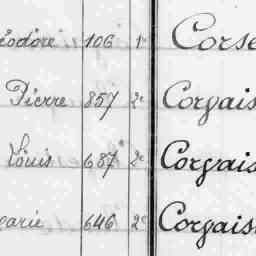 éodore 106 1e Corse
Pierre 857 2e Corçais
Louis 687 2e Corçais
marie 646 2e Corçais